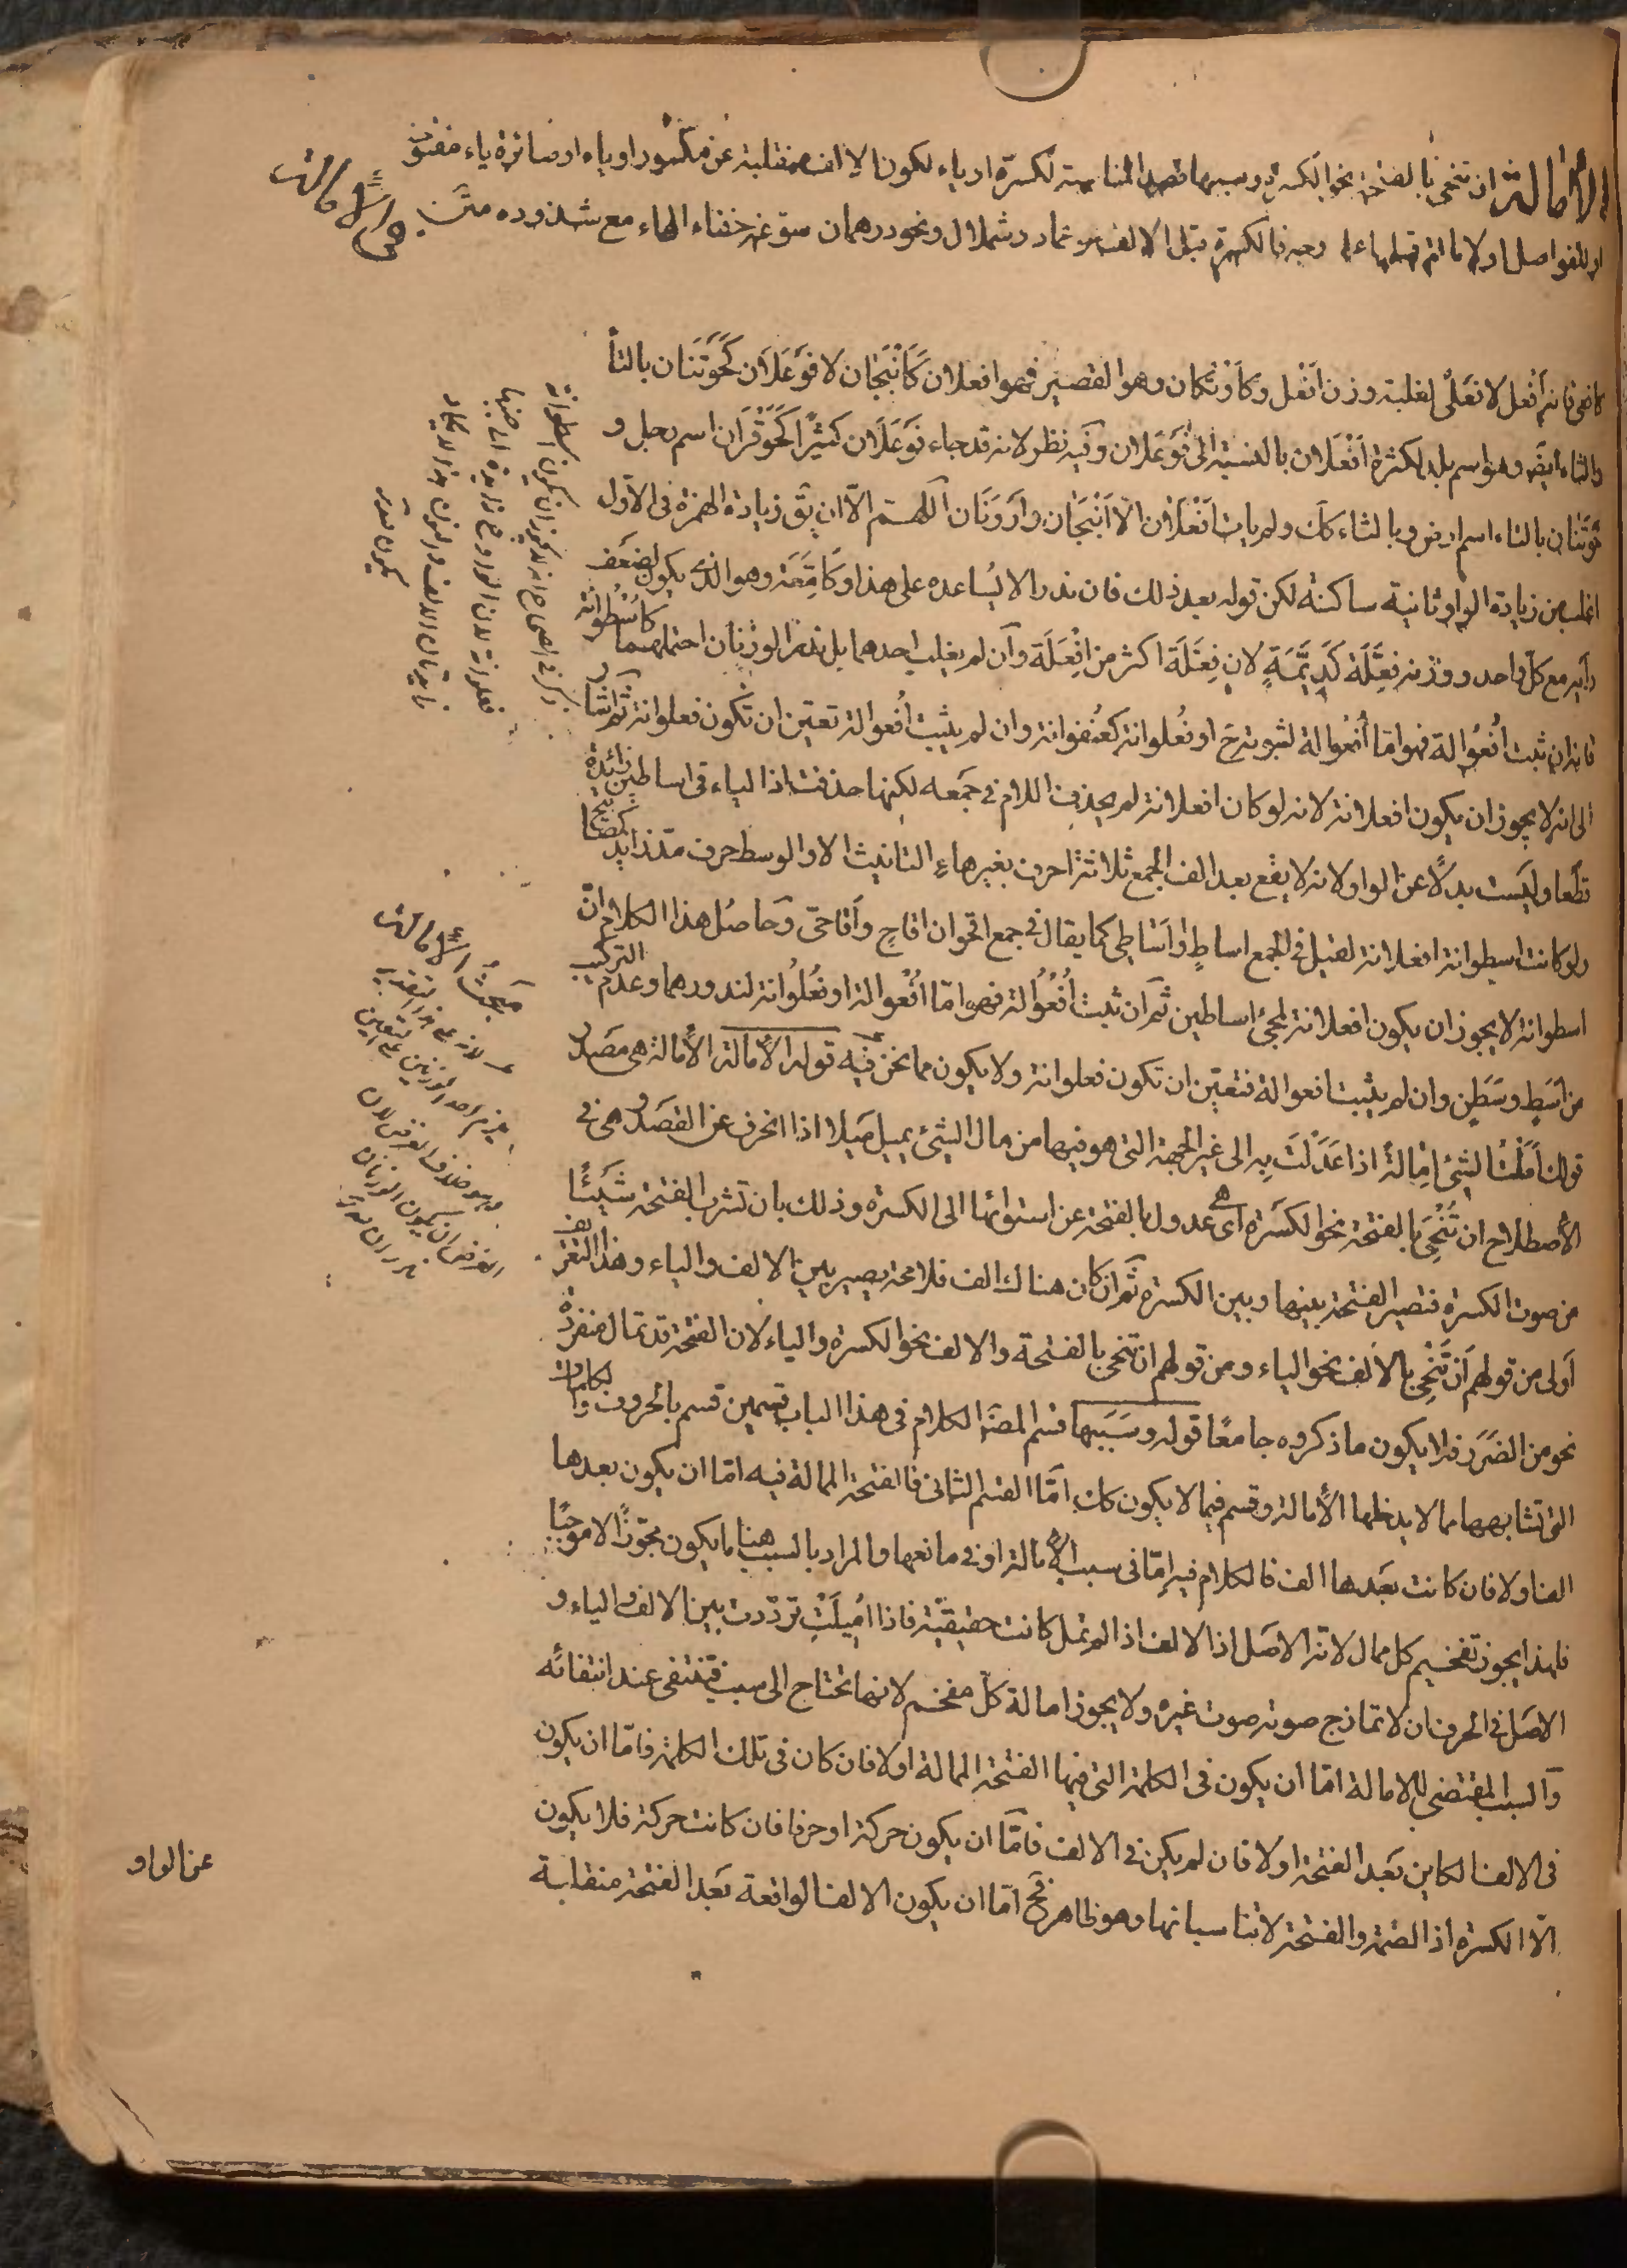 الإمالة ان تنحى بالفتحة نحو الكسرة وسببها قصد المناسبة لكسرة او ياء او لكون الالف منقلبة عن مكسور او ياء او صائرة ياء مفتوحة
او للفواصل او لامالة قبلها على وجه فالكسرة قبل الالف نحو عماد وشملال ونحو درهمان سوغه خفاء الهاء مع شذوذه
مبحث الامالة
كافعى فانه أفعل لا فعلى لغلبة وزن افعل وكاوتكان وهو القصير فهو افعلان كانبجان لا فوعلان كحوتنان بالتاء
والثاء ايضا وهو اسم بلد لكثرة افعلان بالنسبة الى فوعلان وفيه نظر لانه قد جاء فوعلان كثيرا كحوفزان اسم رجل و
حوتنان بالتاء اسم ارض وبالثاء كك ولم يات افعلان الا انبجان وارونان اللهم الا ان يق زيادة الهمزة فى الاول
اغلب من زيادة الواو ثانية ساكنة لكن قوله بعد ذلك فان ندرا لا يساعده على هذا وكامعة وهو الذى يكون لضعف
رأيه مع كل واحد ووزنه فعلة كدنمة لان فعلة اكثر من افعلة وان لم يغلب احدهما بل ندر الوزنان احتملهما كاسطوانة
فانه ان ثبت افعوالة فهو اما افعوالة لثبوته ح او فعلوانة كعنفوانة وان لم يثبت افعوالة تعين ان تكون فعلوانة ثم اشار
الى انه لا يجوز ان يكون افعلانة لانه لو كان افعلانة لم يحذف اللام فى جمعه لكنها حذفت اذ الياء فى اساطين زائدة
قطعا وليست بدلا عن الواو لانه لا يقع بعد الف الجمع ثلاثة احرف بغير هاء التانيث الا والوسط حرف مد زايد كمصابيح
ولو كانت اسطوانة افعلانة لقيل فى الجمع اساط واساطى كما يقال فى جمع اقحوان اقاح واقاحى وحاصل هذا الكلام ان
اسطوانة لا يجوز ان يكون افعلانة لمجئ اساطين ثم ان ثبت افعوالة فهو اما افعوالة او فعلوانة لندورهما وعدم التركيب
من اسط وسطن وان لم يثبت افعوالة فتعين ان تكون فعلوانة ولا يكون مما نحن فيه قوله الامالة الامالة هى مصدر
قولك املت الشئ امالة اذا عدلت به الى غير الجهة التى هو فيها من مال الشئ يميل ميلا اذا انحرف عن القصد وهى فى
الاصطلاح ان تنحى بالفتحة نحو الكسرة اى عدول بالفتحة عن استوائها الى الكسرة وذلك بان تشرب الفتحة شيئا
من صوت الكسرة فتصير الفتحة بينها وبين الكسرة ثم ان كان هناك الف فلا محة يصير بين الالف والياء وهذا التعريف
اولى من قولهم ان تنحى بالالف نحو الياء ومن قولهم ان تنحى بالفتحة والالف نحو الكسرة والياء لان الفتحة قد تمال منفردة
نحو من الضرر فلا يكون ما ذكروه جامعا قوله وسببها قسم المصنف الكلام فى هذا الباب قسمين قسم بالحروف والكلمات
التى تشابهها مما لا يدخلها الامالة وقسم فيما لا يكون كك اما القسم الثانى فالفتحة الممالة فيه اما ان يكون بعدها
الف اولا فان كانت بعدها الف فالكلام فيه اما فى سبب الامالة او فى مانعها والمراد بالسبب هنا ما يكون مجوزا لا موجبا
فلهذا يجوز تفخيم كل ممال لانه الاصل اذ الالف اذا لم تمل كانت حقيقية فاذا اميلت ترددت بين الالف والياء و
الاصل فى الحرف ان لا تمازج صوته صوت غيره ولا يجوز امالة كل مفخم لانها تحتاج الى سبب فتنتفى عند انتفائه
والسبب المقتضى للامالة اما ان يكون فى الكلمة التى فيها الفتحة الممالة اولا فان كان فى تلك الكلمة فاما ان يكون
فى الالف الكاين بعد الفتحة اولا فان لم يكن فى الالف فاما ان يكون حركة او حرفا فان كانت حركة فلا يكون
الا الكسرة اذ الضمة والفتحة لا تناسبانها وهو ظاهر فح اما ان يكون الالف الواقعة بعد الفتحة منقلبة
عن الواو
مبحث الامالة